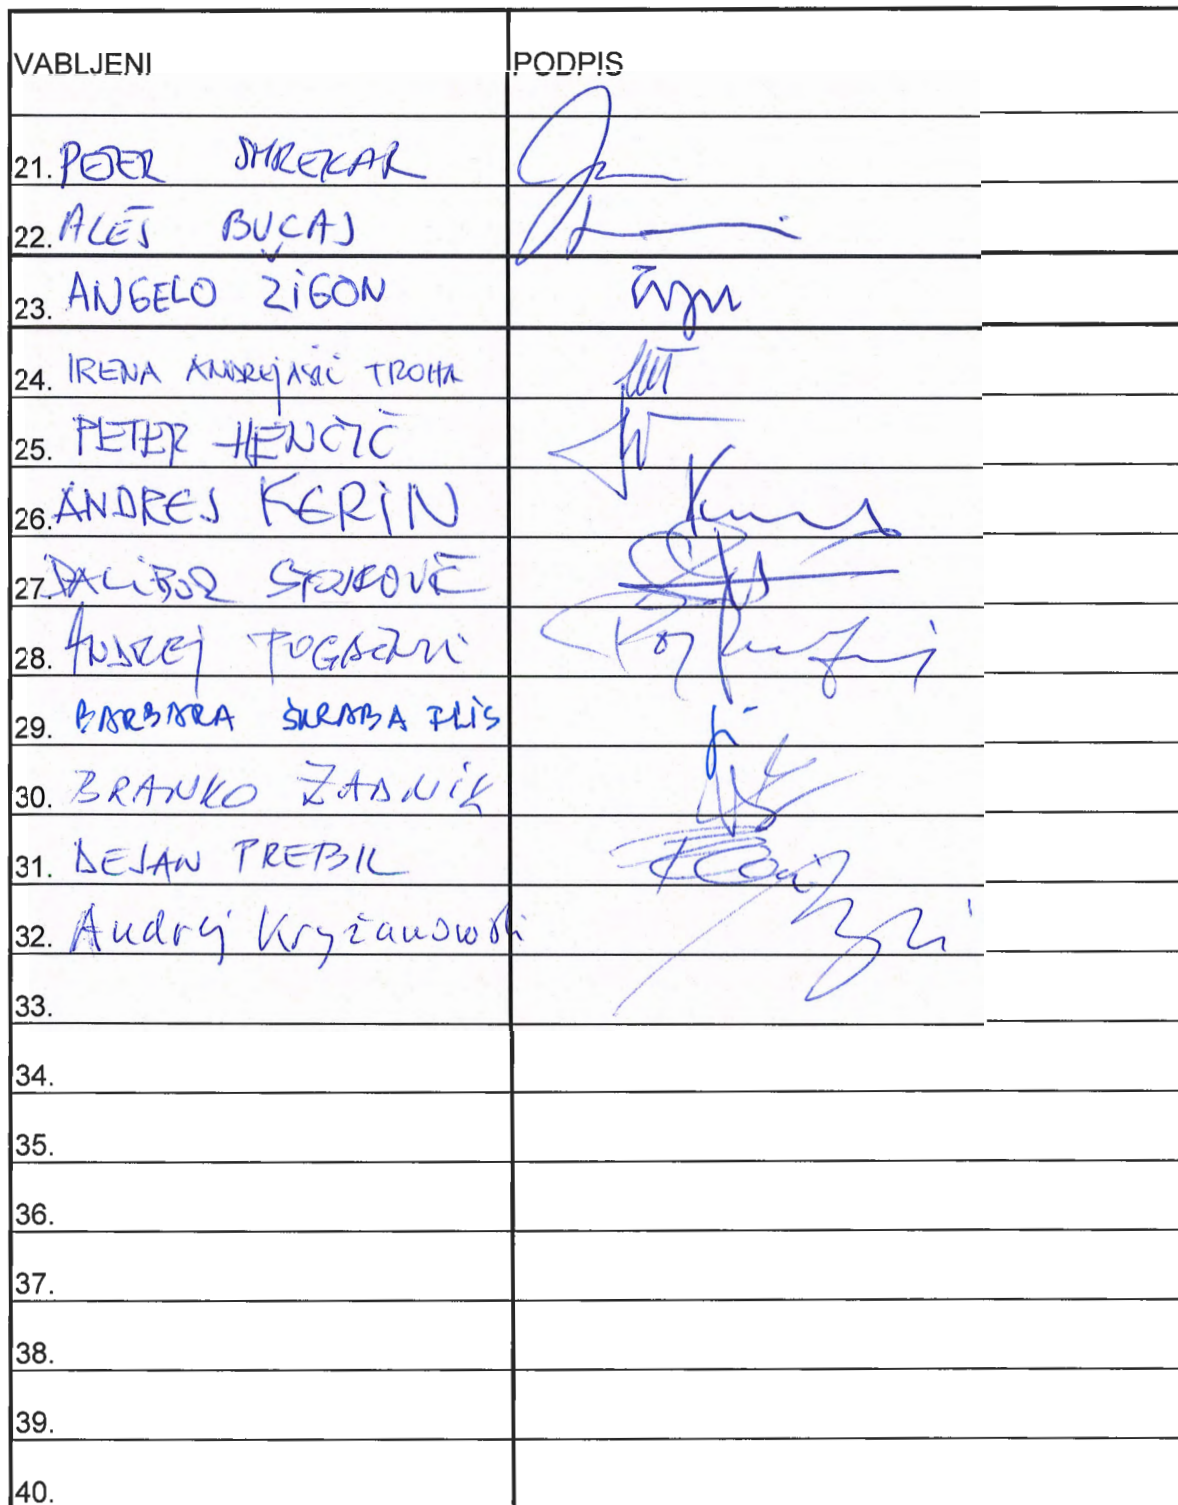 VABLJENI PODPIS
21. PETER SMREKAR
22. ALEŠ BUCAJ
23. ANGELO ŽIGON
24. IRENA ANDREJAŠIČ TROHA
25. PETER HENČIČ
26. ANDREJ KERIN
27. DALIBOR
28. ANDREJ
29. BARBARA ŠKRABA FLIS
30. BRANKO ZADNIK
31. DEJAN PREBIL
32. Andrej Kryžanowski
33.
34.
35.
36.
37.
38.
39.
40.